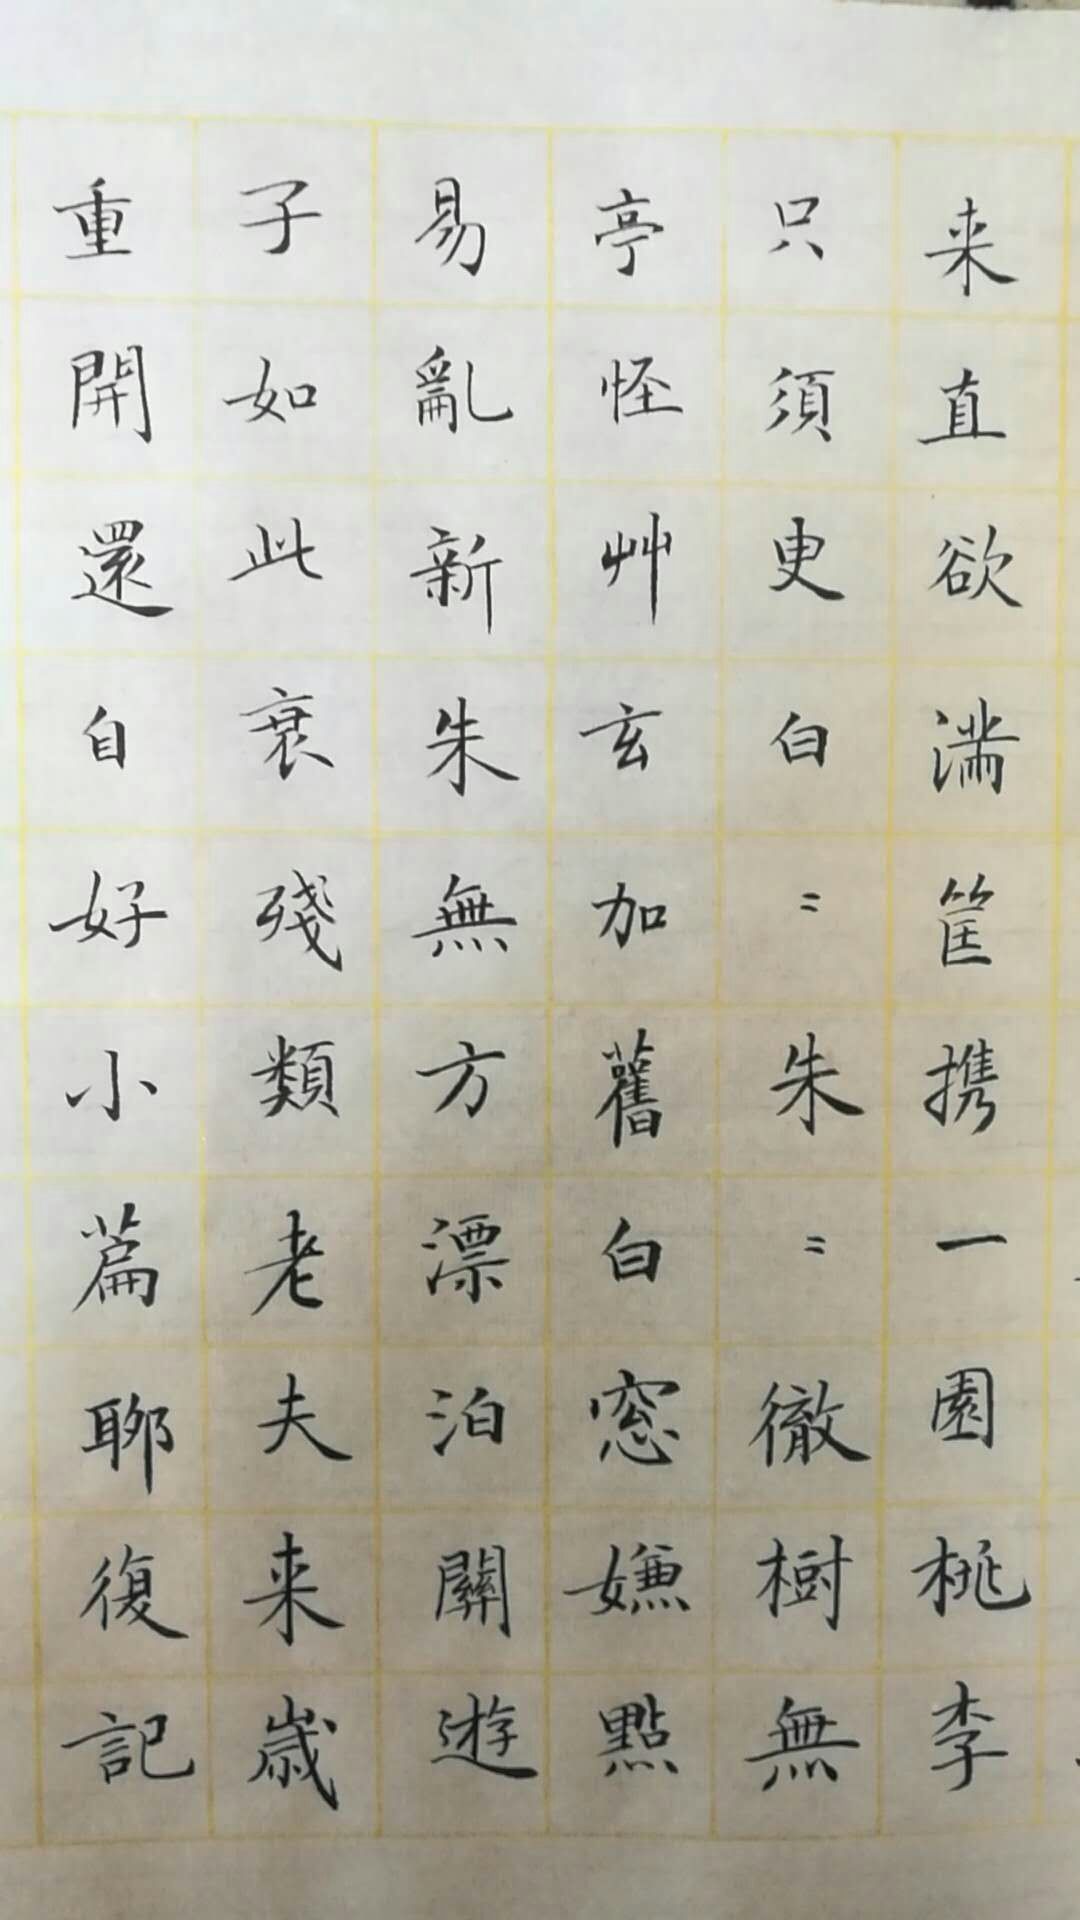 来直欲满筐携一園桃李
只須更白〻朱〻徹樹無
亭怪艸玄加舊白窓嫌點
易亂新朱無方漂泊關遊
子如此衰殘類老夫来歲
重開還自好小篇聊復記